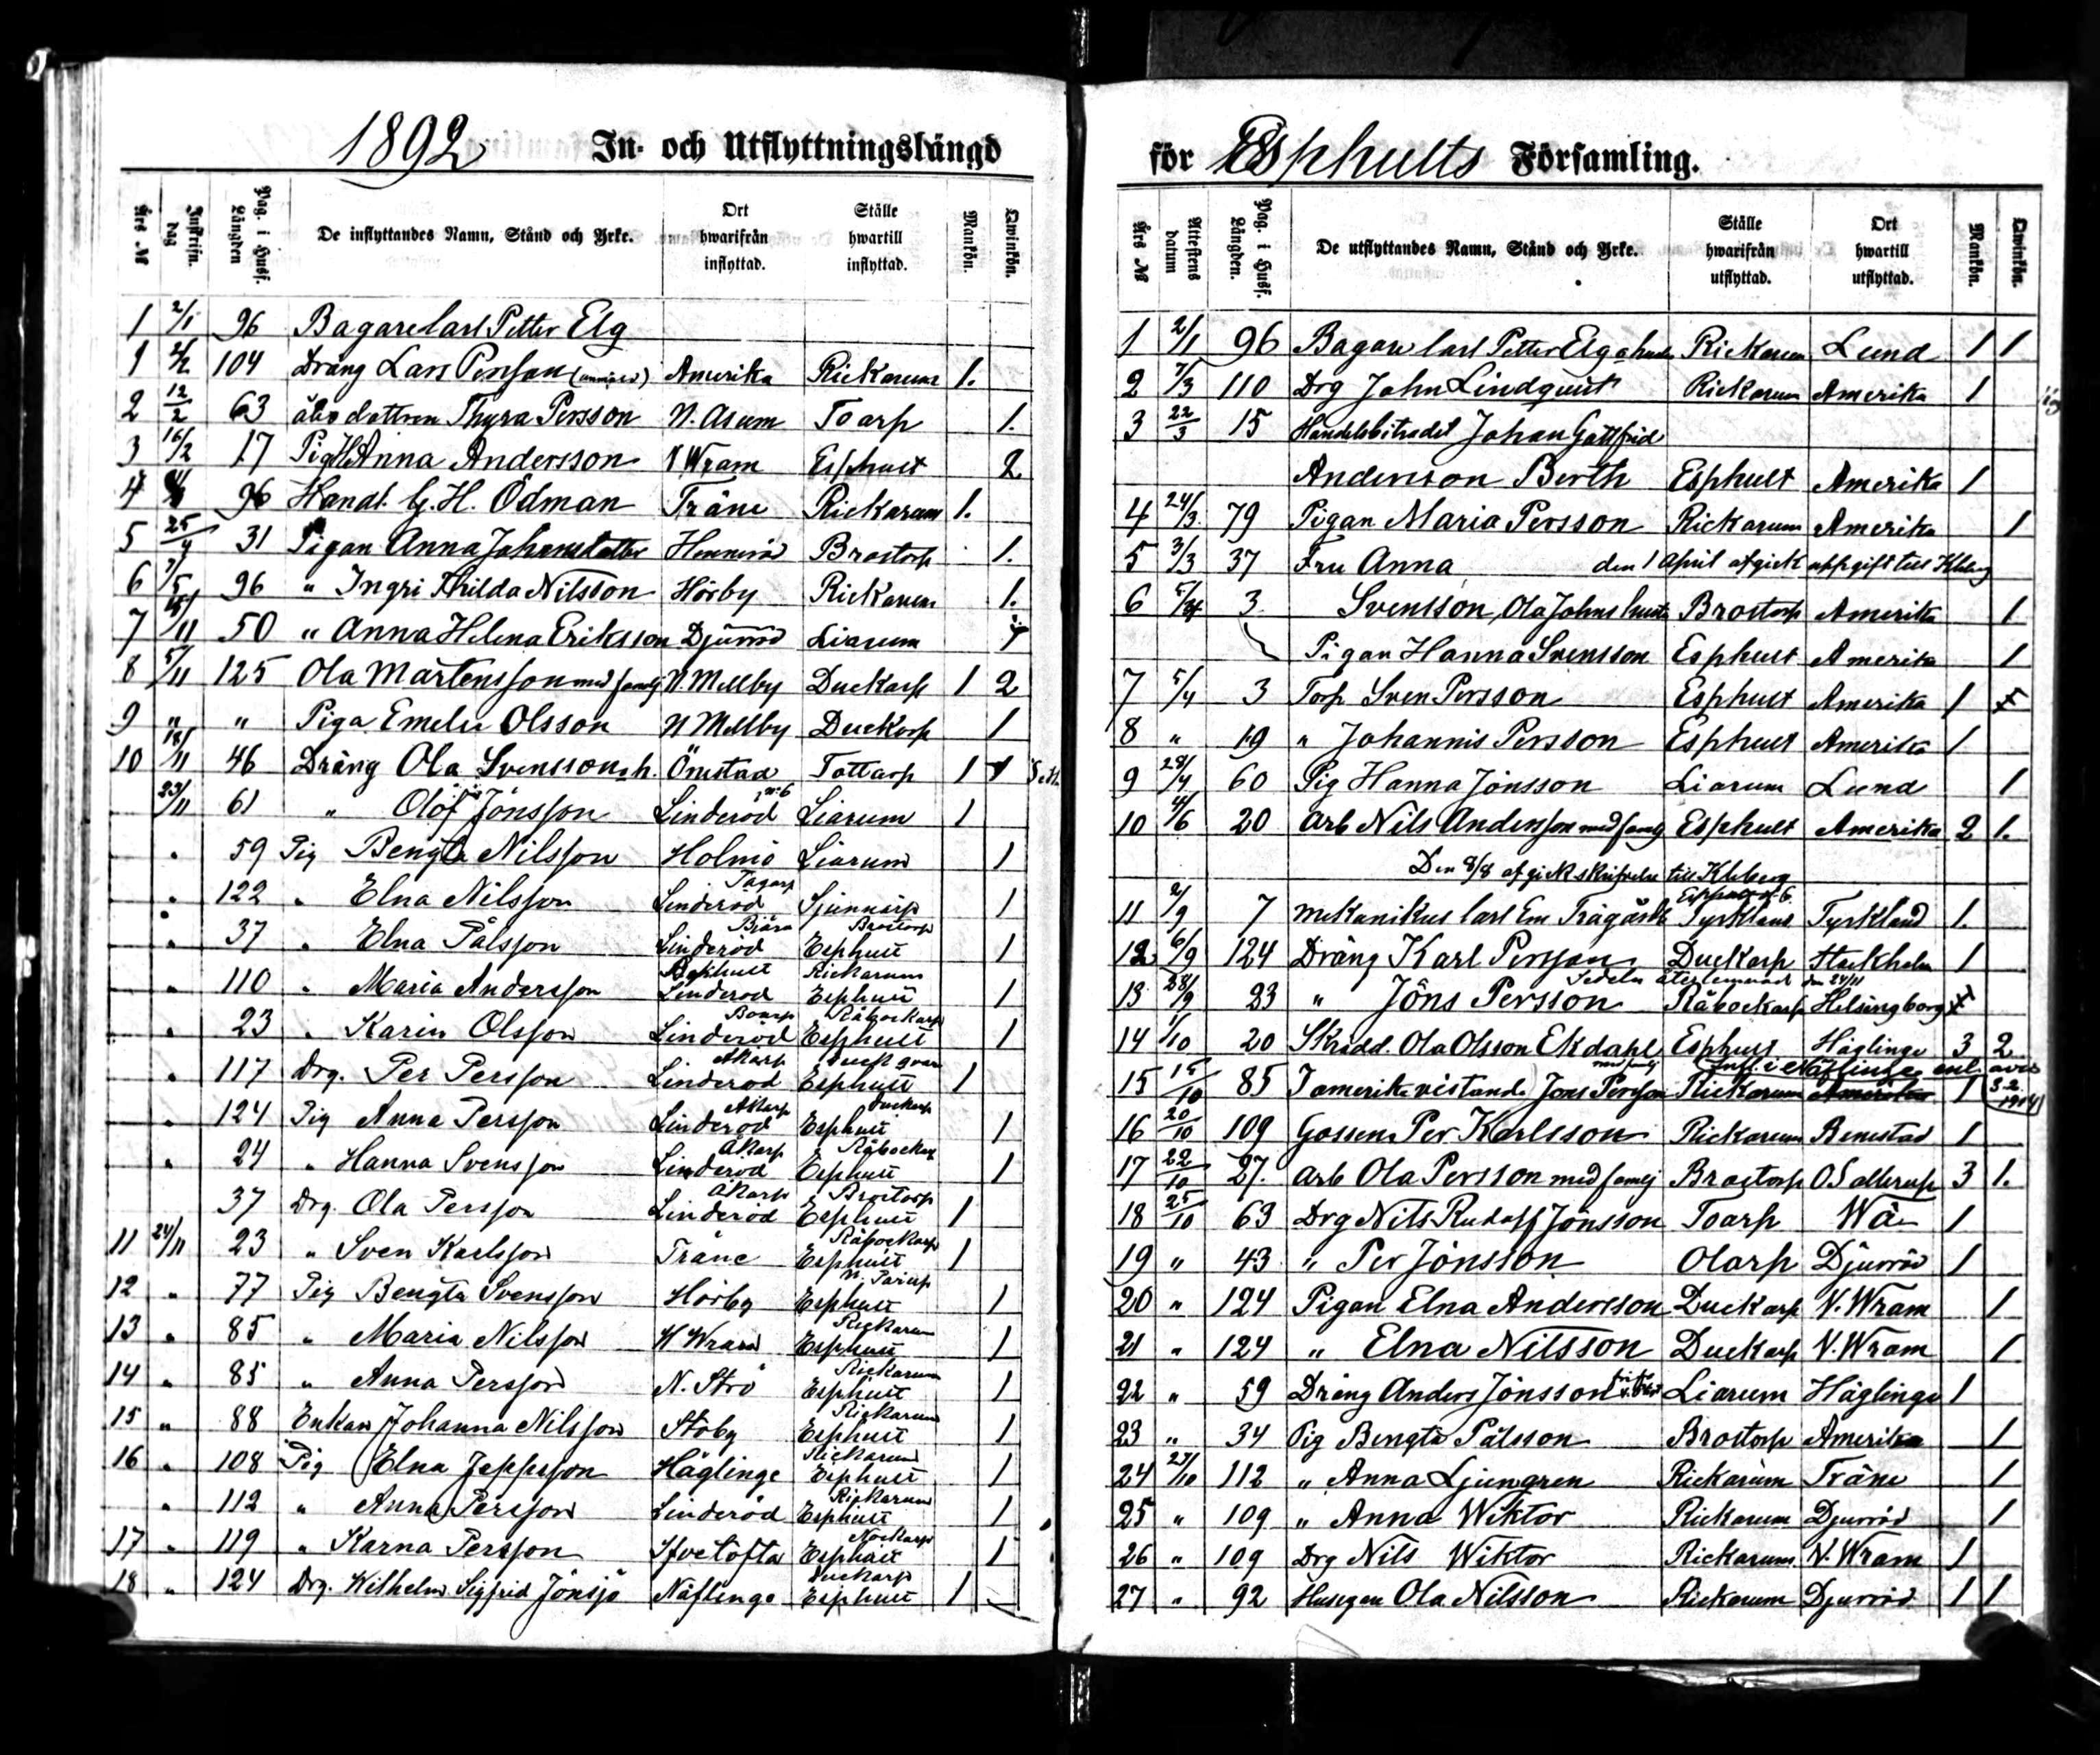 1892 In- och Utflyttningslängd
Års № Inskrifn. dag Pag. i Husf. Längden De inflyttandes Namn, Stånd och Yrke. Ort hwarifrån inflyttad. Ställe hwartill inflyttad. Mankön. Qwinkön.
1 2/1 96 Bagare Carl Petter Elg
1 2/2 104 Dräng Lars Persson Amerika Rickarum 1.
2 12/2 63 åbodottren Thyra Persson N. Asum Toarp 1.
3 16/2 17 Pig Anna Andersson V Wram Esphult 2
4 96 Handl. G. H. Ödman Träne Rickarum 1.
5 25/4 31 Pigan Anna Johansdotter Brostorp 1.
6 7/5 96 " Ingri Thilda Nilsson Hörby Rickarum 1.
7 50 " Anna Helena Eriksson Djurröd Liarum 1
8 5/11 125 Ola Mårtensson med familj N. Mellby Duckarp 1 2
9 " " Piga Emelie Olsson N Mellby Duckarp 1
10 18/11 46 Dräng Ola Svensson o. h. Önestad Tottarp 1 1
23/11 61 " Olof Jönsson Linderöd № 6 Liarum 1
" 59 Pig Bengta Nilsson Holmö Liarum 1
" 122 " Elna Nilsson Linderöd Tagarp Sjunnarp 1
" 37 " Elna Pålsson Linderöd Bjära Esphult Brostorp 1
" 110 " Maria Andersson Linderöd Esphult Rickarum 1
" 23 " Karin Olsson Linderöd Boarp Esphult Råbockarp 1
" 117 Drg. Per Persson Linderöd Åkarp Esphult 1
" 124 Pig Anna Persson Linderöd Åkarp Esphult Duckarp 1
" 24 " Hanna Svensson Linderöd Åkarp Esphult Råbockarp 1
37 Drg. Ola Persson Linderöd Åkarp Esphult Brostorp 1
11 24/11 23 " Sven Karlsson Träne Esphult Råbockarp 1
12 " 77 Pig Bengta Svensson Hörby Esphult 1
13 " 85 " Maria Nilsson Wram Esphult Rickarum 1
14 " 85 " Anna Persson N. Strö Esphult Rickarum 1
15 " 88 Enkan Johanna Nilsson Stoby Esphult Rickarum 1
16 " 108 Pig Elna Jeppsson Häglinge Esphult Rickarum 1
" 112 " Anna Persson Linderöd Esphult Rickarum 1
17 " 119 " Karna Persson Esphult 1
18 " 124 Drg. Wilhelm Sigfrid Jönsso Näflinge Esphult Duckarp 1
för Esphults Församling.
Års № Attestens datum Pag. i Husf. Längden. De utflyttandes Namn, Stånd och Yrke. Ställe hwarifrån utflyttad. Ort hwartill utflyttad. Mankön. Qwinkön.
1 2/1 96 Bagare Carl Petter Elg o hustr Rickarum Lund 1 1
2 7/3 110 Drg John Lindquist Rickarum Amerika 1
3 22/3 15 Handelsbiträdet Johan Gottfrid
Anderson Berth Esphult Amerika 1
4 24/3 79 Pigan Maria Persson Rickarum Amerika 1
5 3/3 37 Fru Anna den 1 April afgick uppgift till Kleberg
6 5/4 3 Svensson, Ola Johns hustr Brostorp Amerika 1
Pigan Hanna Svensson Esphult Amerika 1
7 5/4 3 Torp Sven Persson Esphult Amerika 1
8 " 19 " Johannis Persson Esphult Amerika 1
9 28/4 60 Pig Hanna Jönsson Liarum Lund 1
10 4/6 20 Arb Nils Andersson med familj Esphult Amerika 2 1.
Den 8/8 afgick skrifvelse till Kleberg
11 2/9 7 Mekanikus Carl Em Trägårdh Tyskland Esphult № 6. Tyskland 1.
12 6/9 124 Dräng Karl Persson Duckarp Stockholm 1
Sedeln återlemnad den 24/11
13 28/9 23 " Jöns Persson Råbockarp Helsingborg 1
14 1/10 20 Skrädd. Ola Olsson Ekdahl med familj Esphult Häglinge 3 2
Infl. i Näflinge enl. avis 3-2 1904
15 15/10 85 I amerika vistande Jöns Persson Rickarum Amerika 1
16 20/10 109 Gossen Per Karlsson Rickarum Benestad 1
17 22/10 27. Arb Ola Persson med familj Brostorp Ö. Sallerup 3 1.
18 25/10 63 Drg Nils Rudolf Jönsson Toarp Wä 1
19 " 43 " Per Jönsson Olarp Djurröd 1
20 " 124 Pigan Elna Andersson Duckarp V. Wram 1
21 " 124 " Elna Nilsson Duckarp V. Wram 1
22 " 59 Dräng Anders Jönsson Liarum Häglinge 1
23 " 34 Pig Bengta Pålsson Brostorp Amerika 1
24 27/10 112 " Anna Ljungren Rickarum Träne 1
25 " 109 " Anna Wiktor Rickarum Djurröd 1
26 " 109 Drg Nils Wiktor Rickarum V. Wram 1
27 " 92 Husegan Ola Nilsson Rickarum Djurröd 1 1